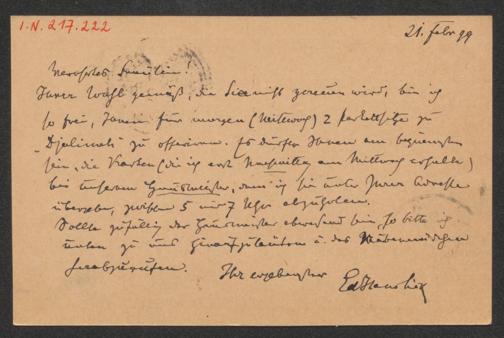 I.N. 217.222
21. Febr 99
Verehrtes Fräulein!
Ihrer Wahl gemäß, die Sie nicht gereuen wird, bin ich
so frei, Ihnen für morgen (Mittwoch) 2 Parketsitze zu
"Djalma" zu offeriren. Es dürfte Ihnen am bequemsten
sein, die Karten (die ich erst Nachmittag am Mittwoch erhalte)
bei unserem Hausmeister, dem ich sie unter Ihrer Adresse
übergebe, zwischen 5 und 7 Uhr abzuholen.
Sollte zufällig der Hausmeister abwesend sein, so bitte ich
unten zu uns heraufzuläuten u. das Stubenmädchen
herabzurufen.
Ihr ergebenster
Ed Hanslick